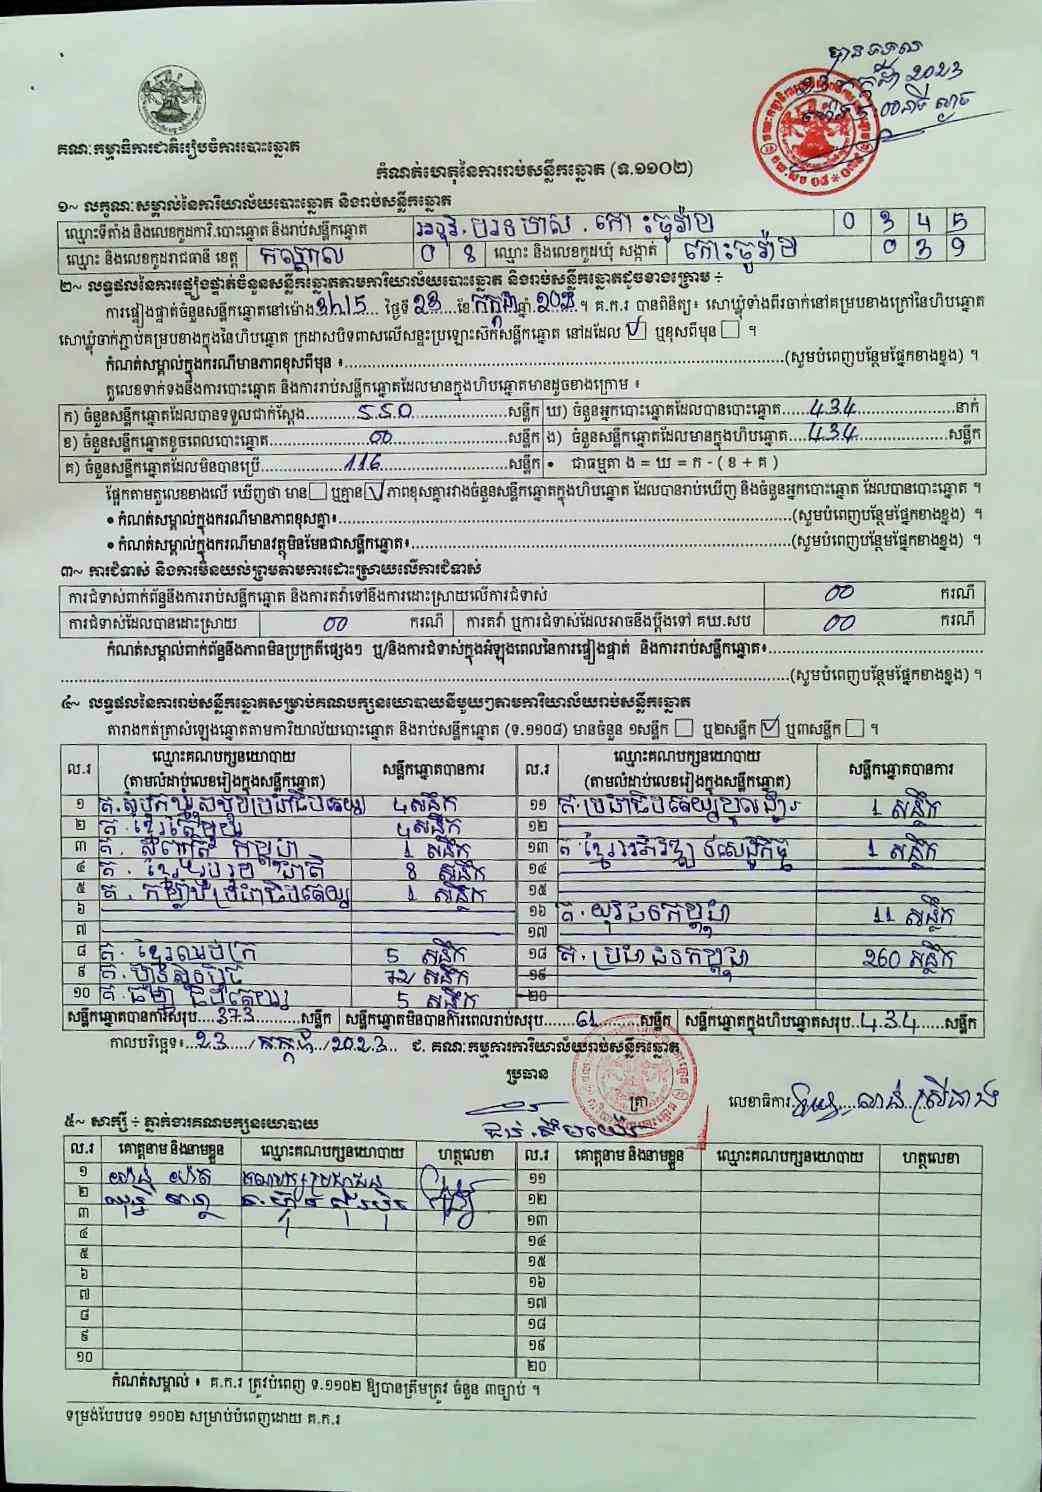 បានទទួល
គណៈកម្មាធិការជាតិរៀបចំការបោះឆ្នោត
កំណត់ហេតុនៃការរាប់សន្លឹកឆ្នោត (ទ.១១០២)
១~ លក្ខណៈសម្គាល់នៃការិយាល័យបោះឆ្នោត និងរាប់សន្លឹកឆ្នោត
ឈ្មោះទីតាំង និងលេខកូដការិ.បោះឆ្នោត និងរាប់សន្លឹកឆ្នោត 0 3 4 5
ឈ្មោះ និងលេខកូដរាជធានី ខេត្ត កណ្តាល 0 8 ឈ្មោះ និងលេខកូដឃុំ សង្កាត់ កោះចូរ៉ាម 0 3 9
២~ លទ្ធផលនៃការផ្ទៀងផ្ទាត់ចំនួនសន្លឹកឆ្នោតតាមការិយាល័យបោះឆ្នោត និងរាប់សន្លឹកឆ្នោតដូចខាងក្រោម ÷
ការផ្ទៀងផ្ទាត់ចំនួនសន្លឹកឆ្នោតនៅម៉ោង 3h15 ថ្ងៃទី 23 ខែ កក្កដា ឆ្នាំ 2023 ។ គ.ក.រ បានពិនិត្យ៖ សោឃ្លុំទាំងពីរចាក់នៅគម្របខាងក្រៅនៃហិបឆ្នោត
សោឃ្លុំចាក់ភ្ជាប់គម្របខាងក្នុងនៃហិបឆ្នោត ក្រដាសបិទពាសលើសន្ទះប្រឡោះស៊កសន្លឹកឆ្នោត នៅដដែល ☑ ឬខុសពីមុន ☐ ។
កំណត់សម្គាល់ក្នុងករណីមានភាពខុសពីមុន ៖ (សូមបំពេញបន្ថែមផ្នែកខាងខ្នង) ។
តួលេខទាក់ទងនឹងការបោះឆ្នោត និងការរាប់សន្លឹកឆ្នោតដែលមានក្នុងហិបឆ្នោតមានដូចខាងក្រោម ៖
ក) ចំនួនសន្លឹកឆ្នោតដែលបានទទួលជាក់ស្តែង 550 សន្លឹក ឃ) ចំនួនអ្នកបោះឆ្នោតដែលបានបោះឆ្នោត 434 នាក់
ខ) ចំនួនសន្លឹកឆ្នោតខូចពេលបោះឆ្នោត 00 សន្លឹក ង) ចំនួនសន្លឹកឆ្នោតដែលមានក្នុងហិបឆ្នោត 434 សន្លឹក
គ) ចំនួនសន្លឹកឆ្នោតដែលមិនបានប្រើ 116 សន្លឹក • ជាធម្មតា ង = ឃ = ក - ( ខ + គ )
ផ្អែកតាមតួលេខខាងលើ ឃើញថា មាន ☐ ឬគ្មាន ☑ ភាពខុសគ្នារវាងចំនួនសន្លឹកឆ្នោតក្នុងហិបឆ្នោត ដែលបានរាប់ឃើញ និងចំនួនអ្នកបោះឆ្នោត ដែលបានបោះឆ្នោត ។
• កំណត់សម្គាល់ក្នុងករណីមានភាពខុសគ្នា៖ (សូមបំពេញបន្ថែមផ្នែកខាងខ្នង) ។
• កំណត់សម្គាល់ក្នុងករណីមានវត្ថុមិនមែនជាសន្លឹកឆ្នោត៖ (សូមបំពេញបន្ថែមផ្នែកខាងខ្នង) ។
៣~ ការជំទាស់ និងការមិនយល់ព្រមតាមការដោះស្រាយលើការជំទាស់
ការជំទាស់ពាក់ព័ន្ធនឹងការរាប់សន្លឹកឆ្នោត និងការតវ៉ាទៅនឹងការដោះស្រាយលើការជំទាស់ 00 ករណី
ការជំទាស់ដែលបានដោះស្រាយ 00 ករណី ការតវ៉ា ឬការជំទាស់ដែលអាចនឹងប្តឹងទៅ គឃ.សប 00 ករណី
កំណត់សម្គាល់ពាក់ព័ន្ធនឹងភាពមិនប្រក្រតីផ្សេងៗ ឬ/និងការជំទាស់ក្នុងអំឡុងពេលនៃការផ្ទៀងផ្ទាត់ និងការរាប់សន្លឹកឆ្នោត៖
(សូមបំពេញបន្ថែមផ្នែកខាងខ្នង) ។
៤~ លទ្ធផលនៃការរាប់សន្លឹកឆ្នោតសម្រាប់គណបក្សនយោបាយនីមួយៗតាមការិយាល័យរាប់សន្លឹកឆ្នោត
តារាងកត់ត្រាសំឡេងឆ្នោតតាមការិយាល័យបោះឆ្នោត និងរាប់សន្លឹកឆ្នោត (ទ.១១០៨) មានចំនួន ១សន្លឹក ☐ ឬ២សន្លឹក ☑ ឬ៣សន្លឹក ☐ ។
ល.រ ឈ្មោះគណបក្សនយោបាយ (តាមលំដាប់លេខរៀងក្នុងសន្លឹកឆ្នោត) សន្លឹកឆ្នោតបានការ ល.រ ឈ្មោះគណបក្សនយោបាយ (តាមលំដាប់លេខរៀងក្នុងសន្លឹកឆ្នោត) សន្លឹកឆ្នោតបានការ
១ គ.សំបុកឃ្មុំសង្គមប្រជាធិបតេយ្យ 4 សន្លឹក ១១ គ.ប្រជាធិបតេយ្យមូលដ្ឋាន 1 សន្លឹក
២ គ.ខ្មែរតែមួយ 4 សន្លឹក ១២
៣ 1 សន្លឹក ១៣ គ.ខ្មែរអភិវឌ្ឍន៍សេដ្ឋកិច្ច 1 សន្លឹក
៤ គ.ខ្មែររួបរួមជាតិ 8 សន្លឹក ១៤
៥ គ.កម្លាំងប្រជាធិបតេយ្យ 1 សន្លឹក ១៥
៦ ១៦ គ.យុវជនកម្ពុជា 11 សន្លឹក
៧ ១៧
៨ គ.ខ្មែរឈប់ក្រ 5 សន្លឹក ១៨ គ.ប្រជាជនកម្ពុជា 260 សន្លឹក
៩ គ.ហ៊្វុនស៊ិនប៉ិច 72 សន្លឹក ១៩
១០ គ.ធម្មាធិបតេយ្យ 5 សន្លឹក ២០
សន្លឹកឆ្នោតបានការសរុប 373 សន្លឹក សន្លឹកឆ្នោតមិនបានការពេលរាប់សរុប 61 សន្លឹក សន្លឹកឆ្នោតក្នុងហិបឆ្នោតសរុប 434 សន្លឹក
កាលបរិច្ឆេទ៖ 23 / កក្កដា / 2023 ជ. គណៈកម្មការការិយាល័យរាប់សន្លឹកឆ្នោត
ប្រធាន
ត្រា លេខាធិការ
៥~ សាក្សី ÷ ភ្នាក់ងារគណបក្សនយោបាយ
ល.រ គោត្តនាម និងនាមខ្លួន ឈ្មោះគណបក្សនយោបាយ ហត្ថលេខា ល.រ គោត្តនាម និងនាមខ្លួន ឈ្មោះគណបក្សនយោបាយ ហត្ថលេខា
១ ១១
២ ១២
៣ ១៣
៤ ១៤
៥ ១៥
៦ ១៦
៧ ១៧
៨ ១៨
៩ ១៩
១០ ២០
កំណត់សម្គាល់ ៖ គ.ក.រ ត្រូវបំពេញ ទ.១១០២ ឱ្យបានត្រឹមត្រូវ ចំនួន ៣ច្បាប់ ។
ទម្រង់បែបបទ ១១០២ សម្រាប់បំពេញដោយ គ.ក.រ